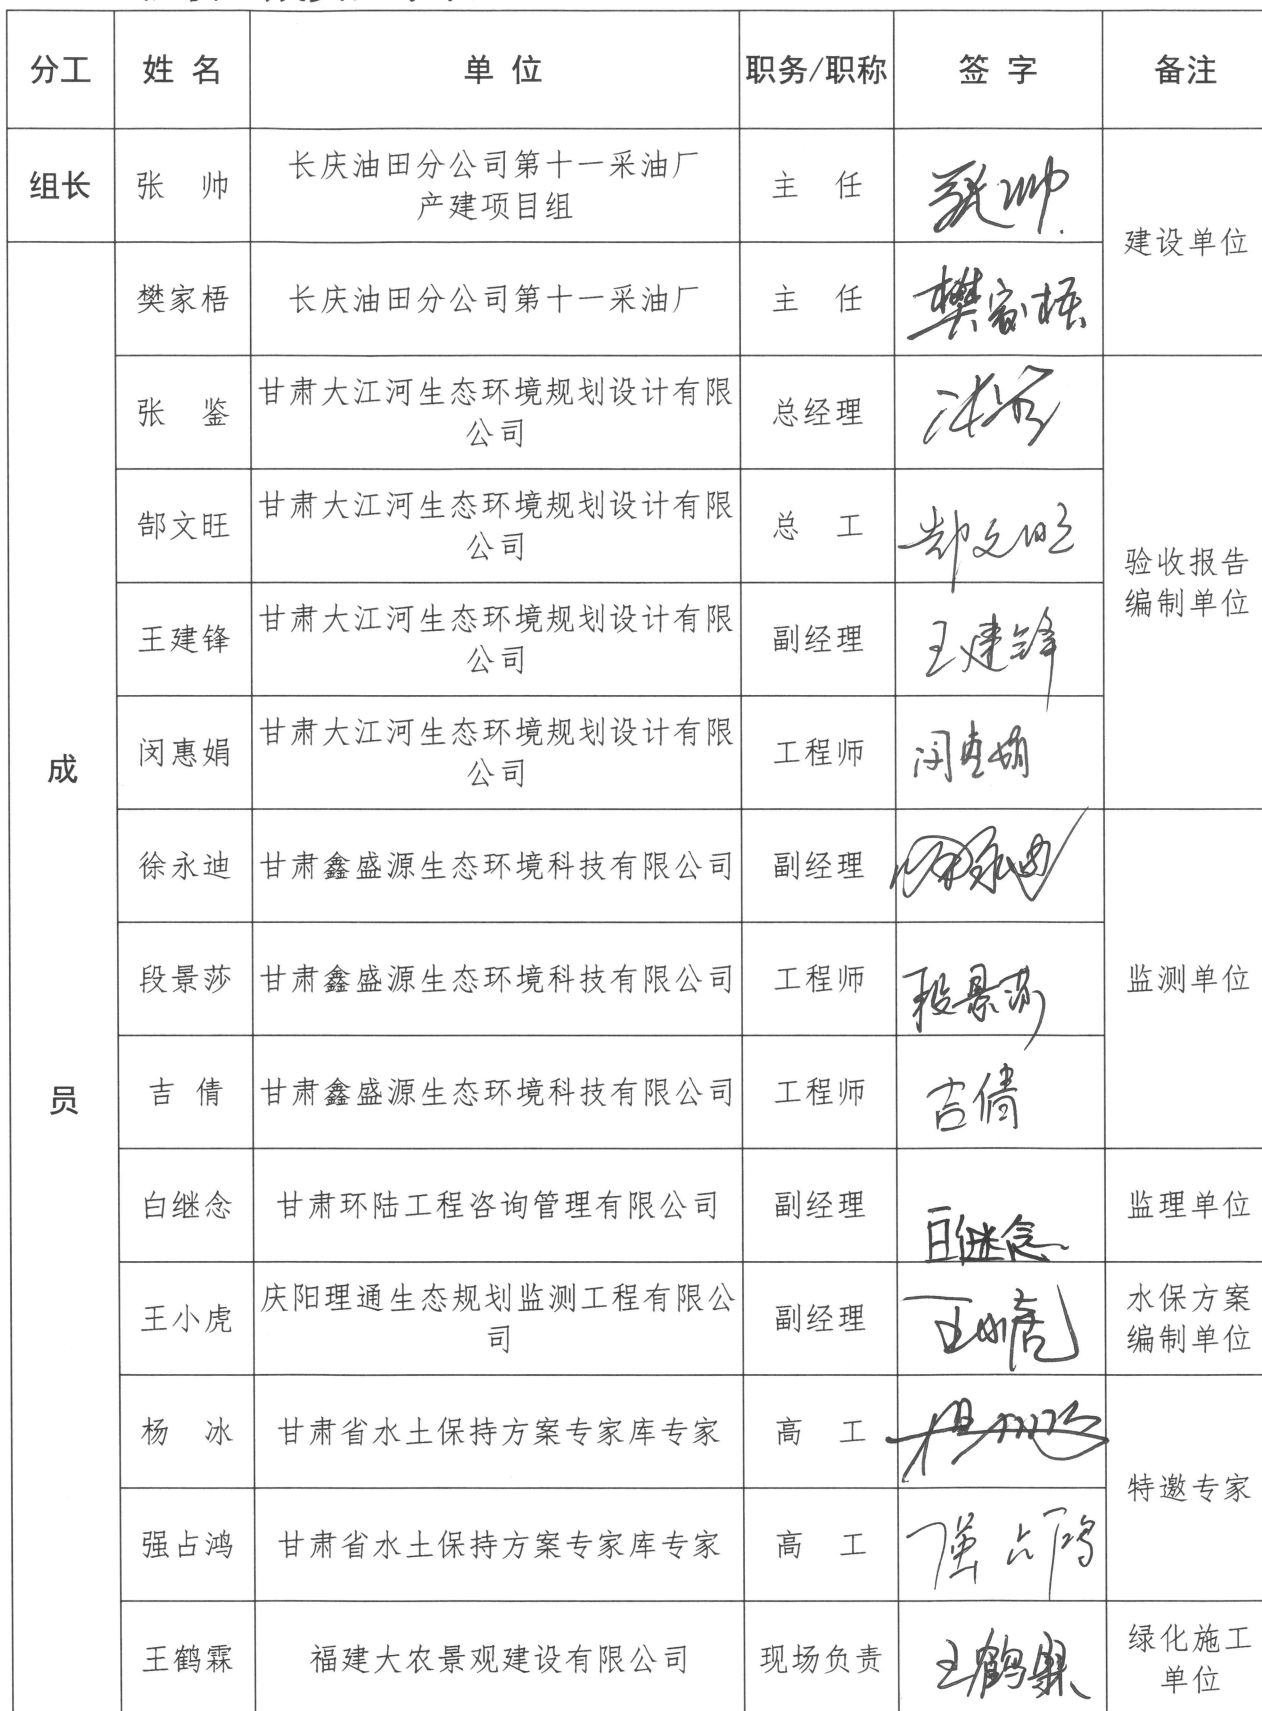 分工 姓名 单位 职务/职称 签字 备注
组长 张帅 长庆油田分公司第十一采油厂
产建项目组 主任 张帅 建设单位
成员
樊家梧 长庆油田分公司第十一采油厂 主任 樊家梧
张鉴 甘肃大江河生态环境规划设计有限
公司 总经理 验收报告
编制单位
郜文旺 甘肃大江河生态环境规划设计有限
公司 总工 郜文旺
王建锋 甘肃大江河生态环境规划设计有限
公司 副经理 王建锋
闵惠娟 甘肃大江河生态环境规划设计有限
公司 工程师 闵惠娟
徐永迪 甘肃鑫盛源生态环境科技有限公司 副经理 徐永迪 监测单位
段景莎 甘肃鑫盛源生态环境科技有限公司 工程师 段景莎
吉倩 甘肃鑫盛源生态环境科技有限公司 工程师 吉倩
白继念 甘肃环陆工程咨询管理有限公司 副经理 白继念 监理单位
王小虎 庆阳理通生态规划监测工程有限公
司 副经理 王小虎 水保方案
编制单位
杨冰 甘肃省水土保持方案专家库专家 高工 特邀专家
强占鸿 甘肃省水土保持方案专家库专家 高工 强占鸿
王鹤霖 福建大农景观建设有限公司 现场负责 王鹤霖 绿化施工
单位